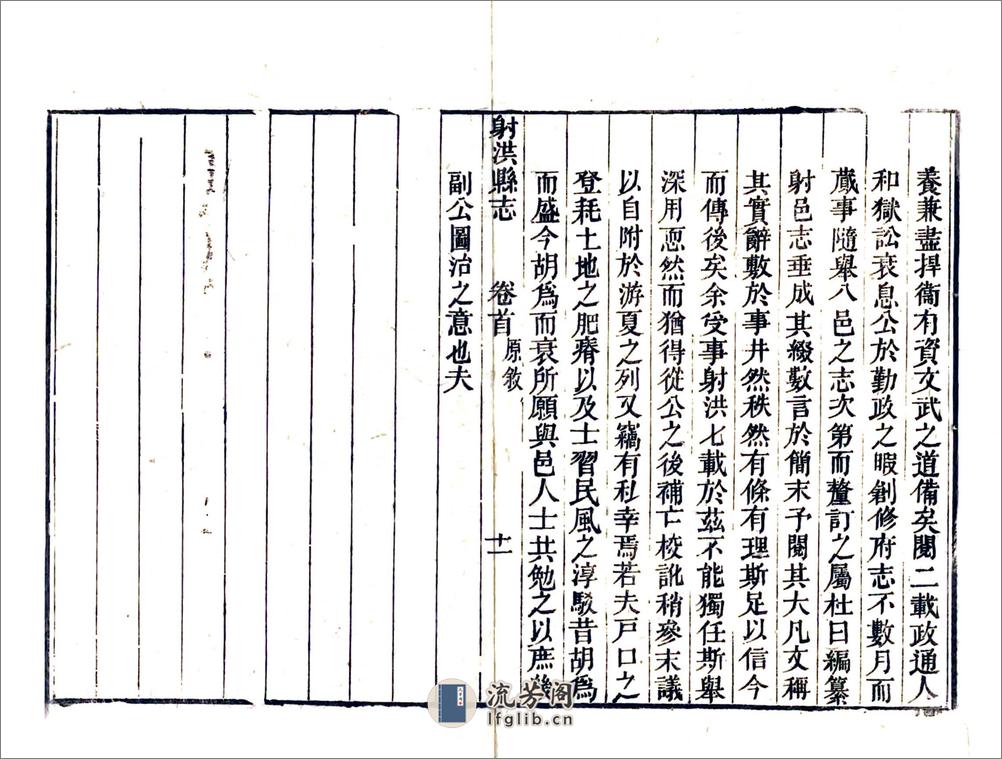 養兼盡捍衞有資文武之道備矣閱二載政通人
和獄訟衰息公於勤政之暇創修府志不數月而
蕆事隨舉八邑之志次第而釐訂之屬杜曰編纂
射邑志垂成其綴數言於簡末予閱其大凡文稱
其實辭敷於事井然秩然有條有理斯足以信今
而傳後矣余受事射洪七載於茲不能獨任斯舉
深用恧然而猶得從公之後補亡校訛稍參末議
以自附於游夏之列又竊有私幸焉若夫戸口之
登耗土地之肥瘠以及士習民風之淳駁昔胡爲
而盛今胡爲而衰所願與邑人士共勉之以庶幾
射洪縣志 卷首 原敘 十一
副公圖治之意也夫
流芳阁
lfglib.cn